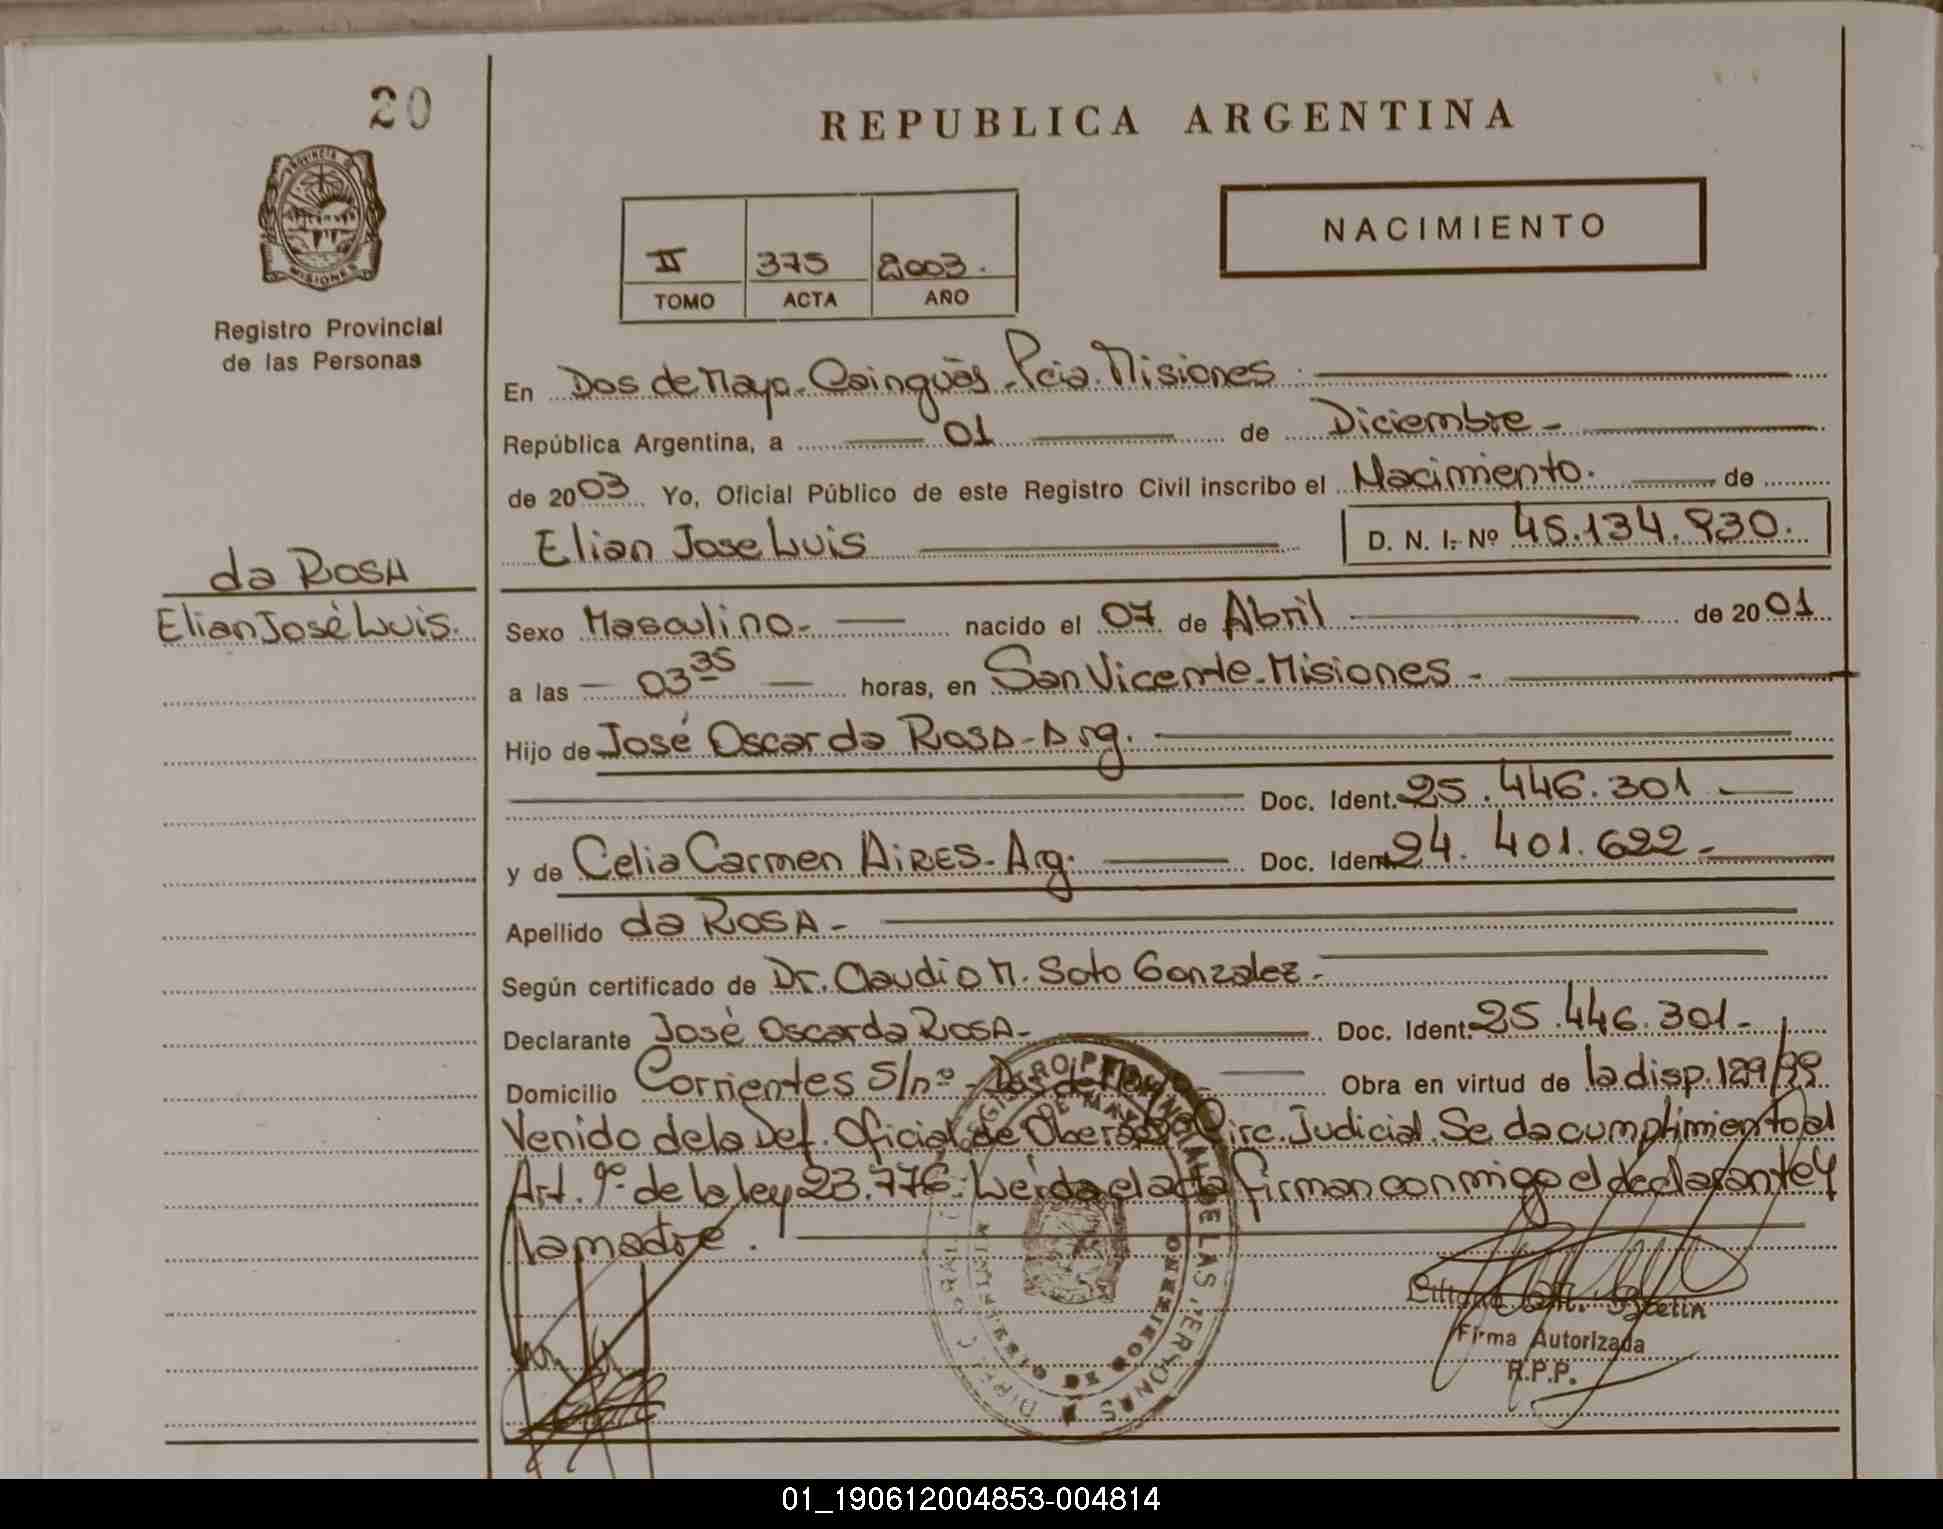 20
REPUBLICA ARGENTINA
NACIMIENTO
II 375 2003.
TOMO ACTA AÑO
PROVINCIA DE MISIONES
Registro Provincial
de las Personas
En Dos de Mayo - Cainguàs - Pcia. Misiones
República Argentina, a 01 de Diciembre -
de 2003 Yo, Oficial Público de este Registro Civil inscribo el Nacimiento. de
Elian Jose Luis D. N. I. Nº 45.134.830.
da ROSA
Elian José Luis.
Sexo Masculino - nacido el 07 de Abril de 2001
a las 03 35 horas, en San Vicente - Misiones -
Hijo de José Oscar da ROSA - Arg.
Doc. Ident. 25.446.301
y de Celia Carmen AIRES - Arg. Doc. Ident. 24.401.622 -
Apellido da ROSA -
Según certificado de Dr. Claudio M. Soto Gonzalez -
Declarante José Oscar da ROSA - Doc. Ident. 25.446.301 -
Domicilio Corrientes S/nº - Dos de Mayo - Obra en virtud de la disp. 129/99
Venido de la Def. Oficial de Oberá Circ. Judicial. Se da cumplimiento al
Art. 9º de la ley 23.776. Leída el acta firman conmigo el declarante y
la madre.
Firma Autorizada
R.P.P.
01_190612004853-004814